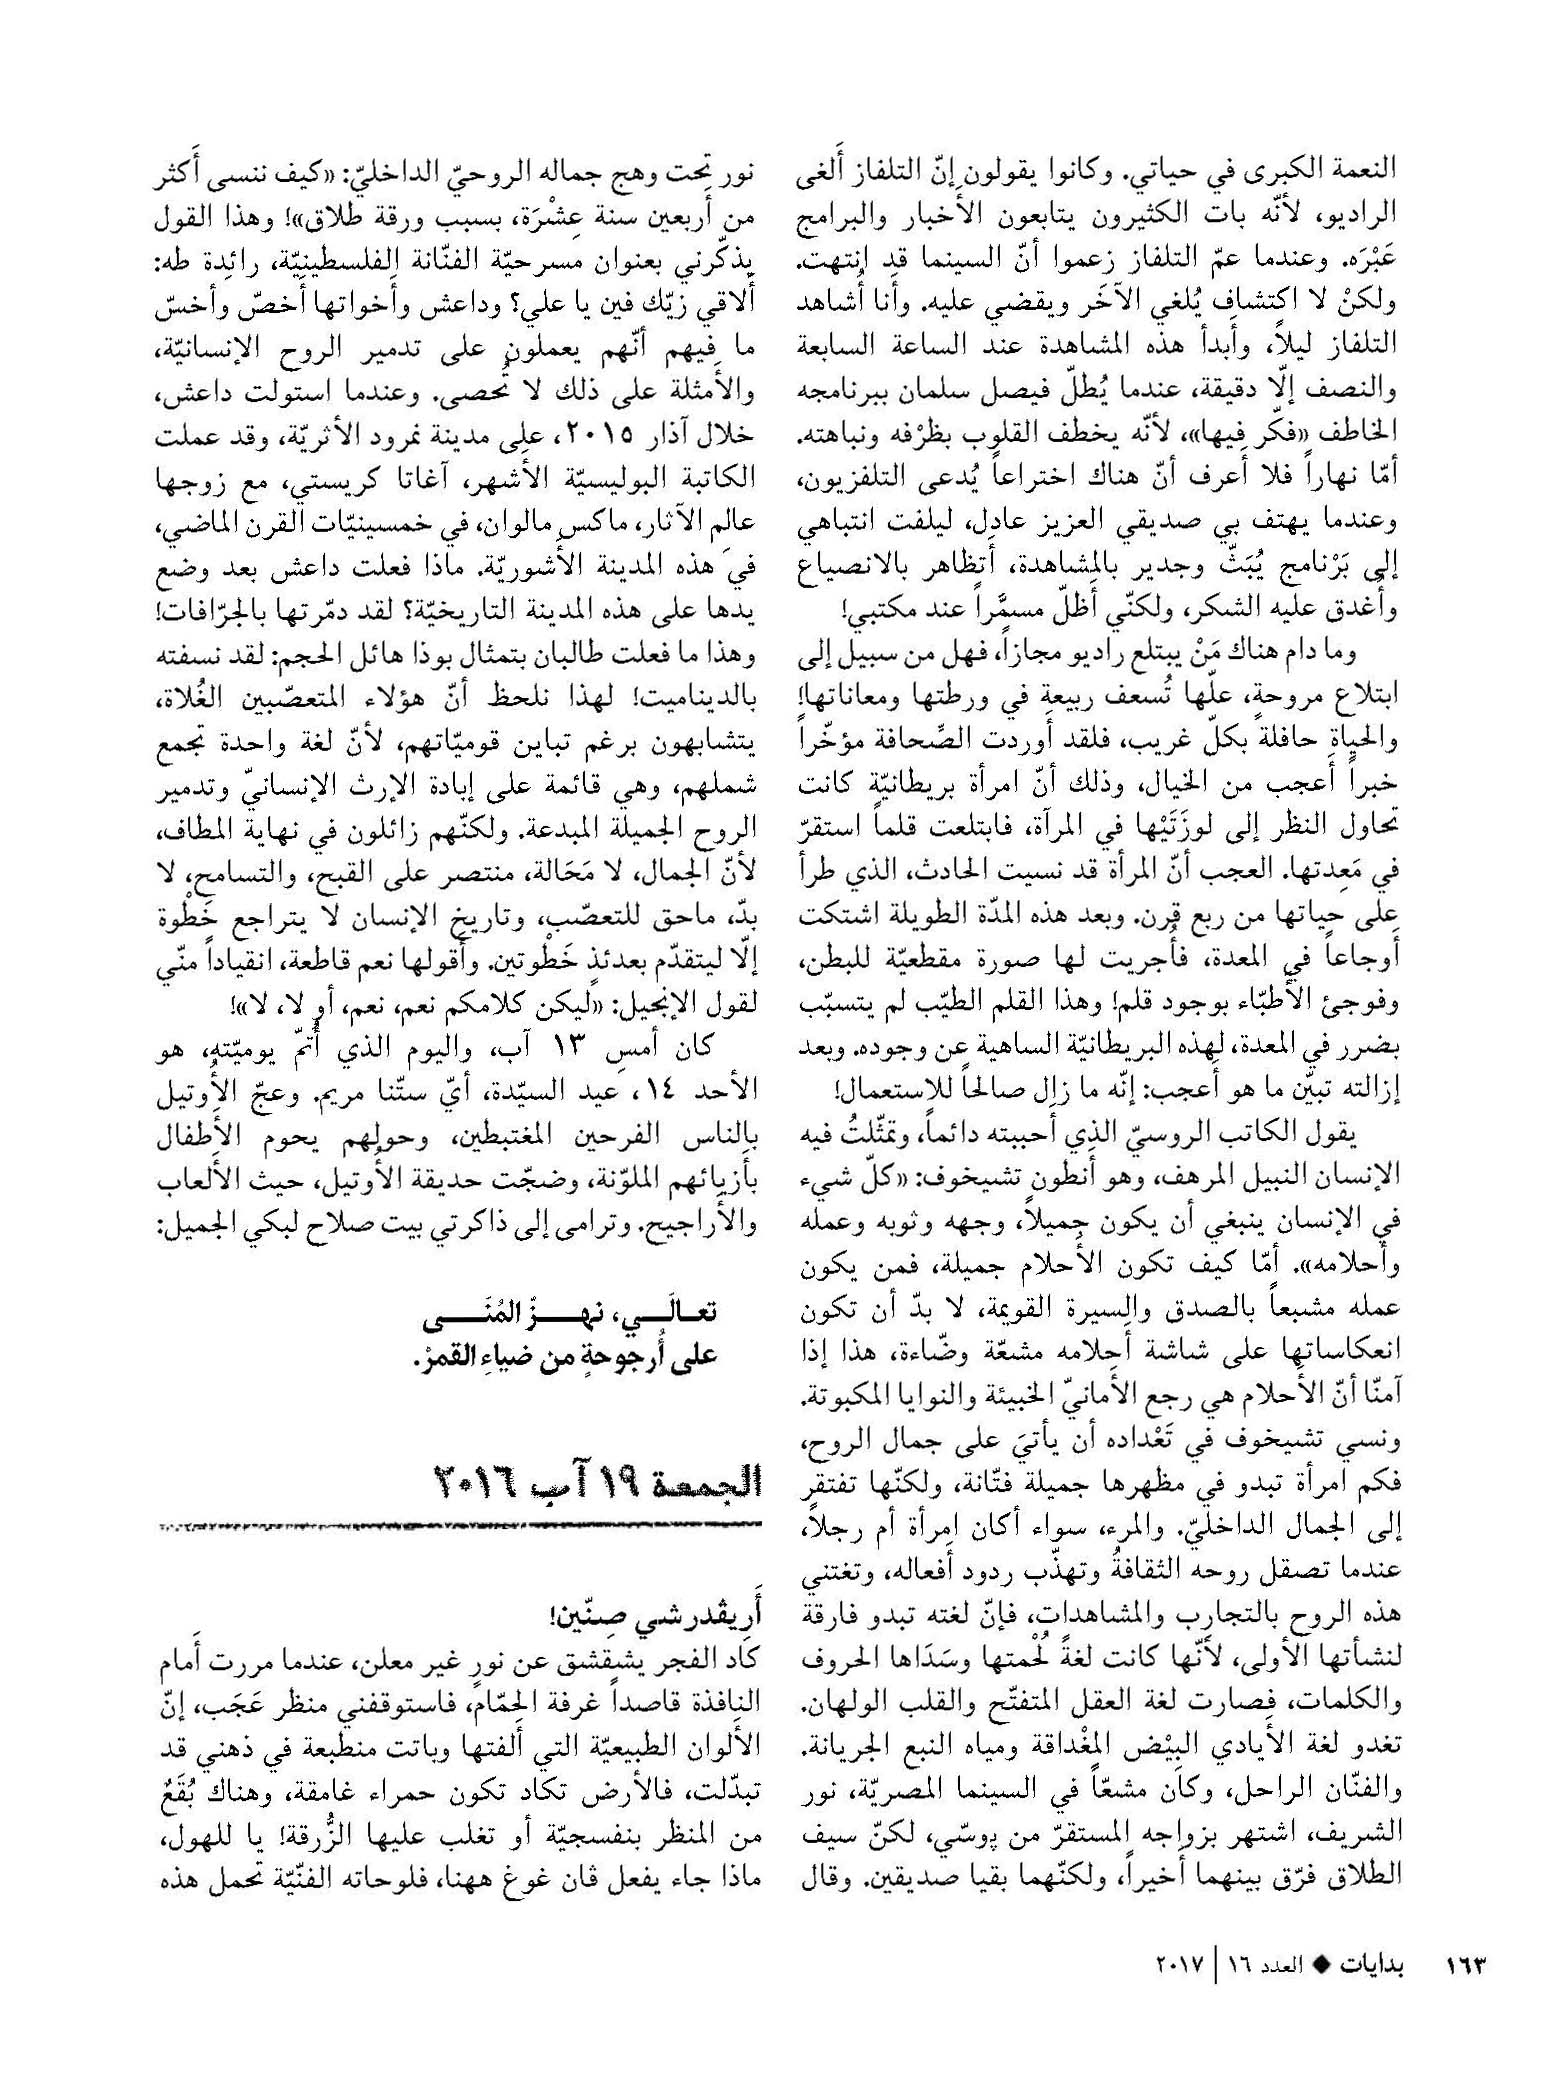 النعمة الكبرى في حياتي. وكانوا يقولون إنّ التلفاز أَلغى
الراديو، لأنّه بات الكثيرون يتابعون الأَخبار والبرامج
عَبْرَه. وعندما عمّ التلفاز زعموا أنّ السينما قد انتهت.
ولكنْ لا اكتشاف يُلغي الآخَر ويقضي عليه. وأَنا أُشاهد
التلفاز ليلاً، وأَبدأ هذه المشاهدة عند الساعة السابعة
والنصف إلّا دقيقة، عندما يُطلّ فيصل سلمان ببرنامجه
الخاطف «فكّر فيها»، لأنّه يخطف القلوب بظرْفه ونباهته.
أمّا نهاراً فلا أَعرف أنّ هناك اختراعاً يُدعى التلفزيون،
وعندما يهتف بي صديقي العزيز عادل، ليلفت انتباهي
إلى بَرْنامج يُبَثّ وجدير بالمشاهدة، أَتظاهر بالانصياع
وأُغدق عليه الشكر، ولكنّي أَظلّ مسمَّراً عند مكتبي!
وما دام هناك مَنْ يبتلع راديو مجازاً، فهل من سبيل إلى
ابتلاع مروحةٍ، علّها تُسعف ربيعة في ورطتها ومعاناتها!
والحياة حافلة بكلّ غريب، فلقد أَوردت الصِّحافة مؤخّراً
خبراً أَعجب من الخيال، وذلك أنّ امرأة بريطانيّة كانت
تحاول النظر إلى لوزَتَيْها في المرآة، فابتلعت قلماً استقرّ
في مَعِدتها. العجب أنّ المرأة قد نسيت الحادث، الذي طرأ
على حياتها من ربع قرن. وبعد هذه المدّة الطويلة اشتكت
أَوجاعاً في المعدة، فأُجريت لها صورة مقطعيّة للبطن،
وفوجئ الأَطبّاء بوجود قلم! وهذا القلم الطيّب لم يتسبّب
بضرر في المعدة، لهذه البريطانيّة الساهية عن وجوده. وبعد
إزالته تبيّن ما هو أَعجب: إنّه ما زال صالحاً للاستعمال!
يقول الكاتب الروسيّ الذي أَحببته دائماً، وتمثّلتُ فيه
الإنسان النبيل المرهف، وهو أَنطون تشيخوف: «كلّ شيء
في الإنسان ينبغي أن يكون جميلاً، وجهه وثوبه وعمله
وأَحلامه». أمّا كيف تكون الأَحلام جميلة، فمن يكون
عمله مشبعاً بالصدق والسيرة القويمة، لا بدّ أن تكون
انعكاساتها على شاشة أَحلامه مشعّة وضّاءة، هذا إذا
آمنّا أنّ الأحلام هي رجع الأَمانيّ الخبيئة والنوايا المكبوتة.
ونسي تشيخوف في تَعْداده أن يأتيَ على جمال الروح،
فكم امرأة تبدو في مظهرها جميلة فتّانة، ولكنّها تفتقر
إلى الجمال الداخليّ. والمرء، سواء أكان امرأة أم رجلاً،
عندما تصقل روحه الثقافةُ وتهذّب ردود أَفعاله، وتغتني
هذه الروح بالتجارب والمشاهدات، فإنّ لغته تبدو فارقة
لنشأتها الأولى، لأَنّها كانت لغةً لُحْمتها وسَدَاها الحروف
والكلمات، فصارت لغة العقل المتفتّح والقلب الولهان.
تغدو لغة الأَيادي البِيْض المِغْداقة ومياه النبع الجريانة.
والفنّان الراحل، وكان مشعّاً في السينما المصريّة، نور
الشريف، اشتهر بزواجه المستقرّ من پوسّي، لكنّ سيف
الطلاق فرّق بينهما أَخيراً، ولكنّهما بقيا صديقين. وقال
نور تحت وهج جماله الروحيّ الداخليّ: «كيف ننسى أَكثر
من أَربعين سنة عِشْرَة، بسبب ورقة طلاق»! وهذا القول
يذكّرني بعنوان مسرحيّة الفنّانة الفلسطينيّة، رائدة طه:
أَلاقي زيّك فين يا علي؟ وداعش وأَخواتها أَخصّ وأخسّ
ما فيهم أنّهم يعملون على تدمير الروح الإنسانيّة،
والأَمثلة على ذلك لا تُحصى. وعندما استولت داعش،
خلال آذار ٢٠١٥، على مدينة نمرود الأثريّة، وقد عملت
الكاتبة البوليسيّة الأَشهر، آغاتا كريستي، مع زوجها
عالِم الآثار، ماكس مالوان، في خمسينيّات القرن الماضي،
في هذه المدينة الأَشوريّة. ماذا فعلت داعش بعد وضع
يدها على هذه المدينة التاريخيّة؟ لقد دمّرتها بالجرّافات!
وهذا ما فعلت طالبان بتمثال بوذا هائل الحجم: لقد نسفته
بالديناميت! لهذا نلحظ أنّ هؤلاء المتعصّبين الغُلاة،
يتشابهون برغم تباين قوميّاتهم، لأنّ لغة واحدة تجمع
شملهم، وهي قائمة على إبادة الإرث الإنسانيّ وتدمير
الروح الجميلة المبدعة. ولكنّهم زائلون في نهاية المطاف،
لأنّ الجمال، لا مَحَالة، منتصر على القبح، والتسامح، لا
بدّ، ماحق للتعصّب، وتاريخ الإنسان لا يتراجع خَطْوة
إلّا ليتقدّم بعدئذٍ خَطْوتين. وأَقولها نعم قاطعة، انقياداً منّي
لقول الإنجيل: «ليكن كلامكم نعم، نعم، أو لا، لا»!
كان أمسِ ١٣ آب، واليوم الذي أُتمّ يوميّته، هو
الأحد ١٤، عيد السيّدة، أيّ ستّنا مريم. وعجّ الأُوتيل
بالناس الفرحين المغتبطين، وحولهم يحوم الأَطفال
بأَزيائهم الملوّنة، وضجّت حديقة الأُوتيل، حيث الأَلعاب
والأَراجيح. وترامى إلى ذاكرتي بيت صلاح لبكي الجميل:
تعـالَـــي، نهـــزّ المُنَـــى
على أُرجوحةٍ من ضياءِ القمرْ.
الجمعة ١٩ آب ٢٠١٦
أَريڤدرشي صِنّين!
كاد الفجر يشقشق عن نورٍ غير معلن، عندما مررت أَمام
النافذة قاصداً غرفة الحمّام، فاستوقفني منظر عَجَب، إنّ
الأَلوان الطبيعيّة التي أَلفتها وباتت منطبعة في ذهني قد
تبدّلت، فالأرض تكاد تكون حمراء غامقة، وهناك بُقَعٌ
من المنظر بنفسجيّة أو تغلب عليها الزُّرقة! يا للهول،
ماذا جاء يفعل ڤان غوغ ههنا، فلوحاته الفنّيّة تحمل هذه
١٦٣ بدايات ◆ العدد ١٦ | ٢٠١٧